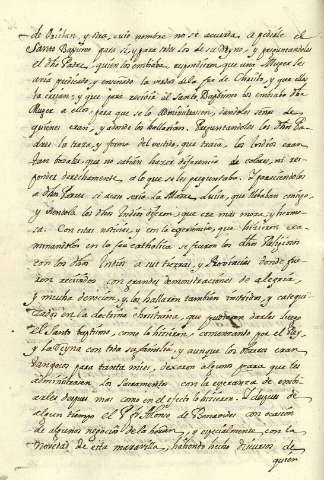 de Quician, y otro, cuio nombre no se acuerda, a pedirle el
Santo Baptismo para si, y para todos los de su Reyno, y preguntandoles
el dho Padre, quien los embiaba, respondieron que una Muger les
avia predicado, y enseñado la verdad de la fee de Christo, y que ellos
la creian; y que para recivir el Santo Baptismo los embiaba dha
Muger a ellos, para que se lo administrasen, dandoles señas de
quienes eran, y adonde los hallarian. Preguntandolos los dhos Pa-
dres la traza, y forma del vestido, que traia, los Indios eran
tan bozales, que no sabian hazer diferencia de colores, ni res-
ponder derechamente a lo que se les preguntaba. Y pareciendoles
a dhos Padres si acaso seria la Madre Luisa, que llebaban consigo,
y viendola los dhos Indios dixeron, que era mas moza, y hermo-
sa. Con estas noticias, y con la experiencia, que hicieron exa-
minandolos en la fee catholica se fueron los dhos Religiosos
con los dhos Indios a sus tierras, y Provincias donde fue-
ron recividos con grandes demonstraciones de alegria,
y mucha devocion, y los hallaron tambien instruidos, y catequi-
zados en la doctrina christiana, que pudieron darles luego
el Santo baptismo, como lo hicieron, comenzando por el Rey,
y la Reyna con toda su familia, y aunque los Padres eran
tan pocos para tanta mies, dexaron algunos para que les
administrasen los Sacramentos con la esperanza de embi-
arles despues mas como en el efecto lo hicieron. Y despues de
algun tiempo el P. fr. Alonso de Benavides con ocasion
de algunos negocios de la orden, y especialmente con la
novedad de esta maravilla, habiendo hecho discursos de
quien